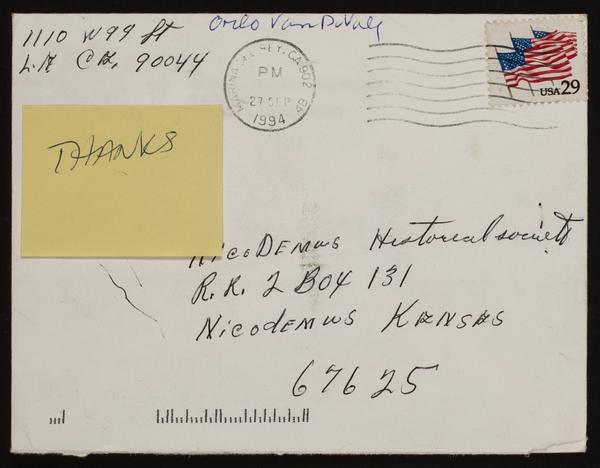 1110 W 99 St
L.A CA, 90044
Orlo Van DuVall
MARINA DEL REY, CA 902
PM
27 SEP
1994
USA 29
THANKS
NicoDEMUS Historical societt
R.R. 2 Box 131
NicodEMUS KANSAS
67625